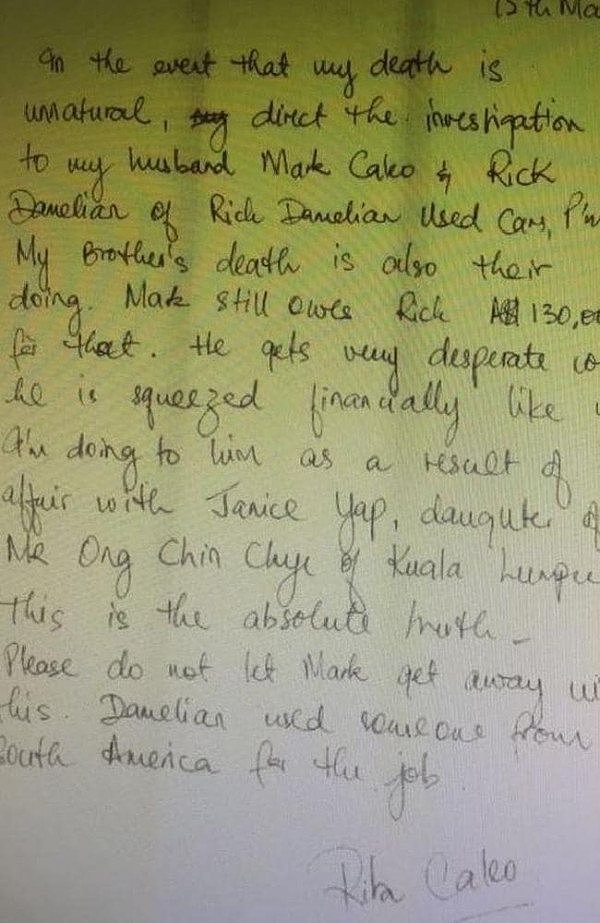 15th Ma
In the event that my death is
unnatural, direct the investigation
to my husband Mark Caleo & Rick
Damelian of Rick Damelian Used Cars, P'm
My Brother's death is also their
doing. Mark still owes Rick A$ 130,00
for that. He gets very desperate
he is squeezed financially like
I'm doing to him as a result of
affair with Janice Yap, daughter of
Mr Ong Chin Chye of Kuala Lumpu
This is the absolute truth -
Please do not let Mark get away wi
this. Damelian used someone from
South America for the job.
Rita Caleo